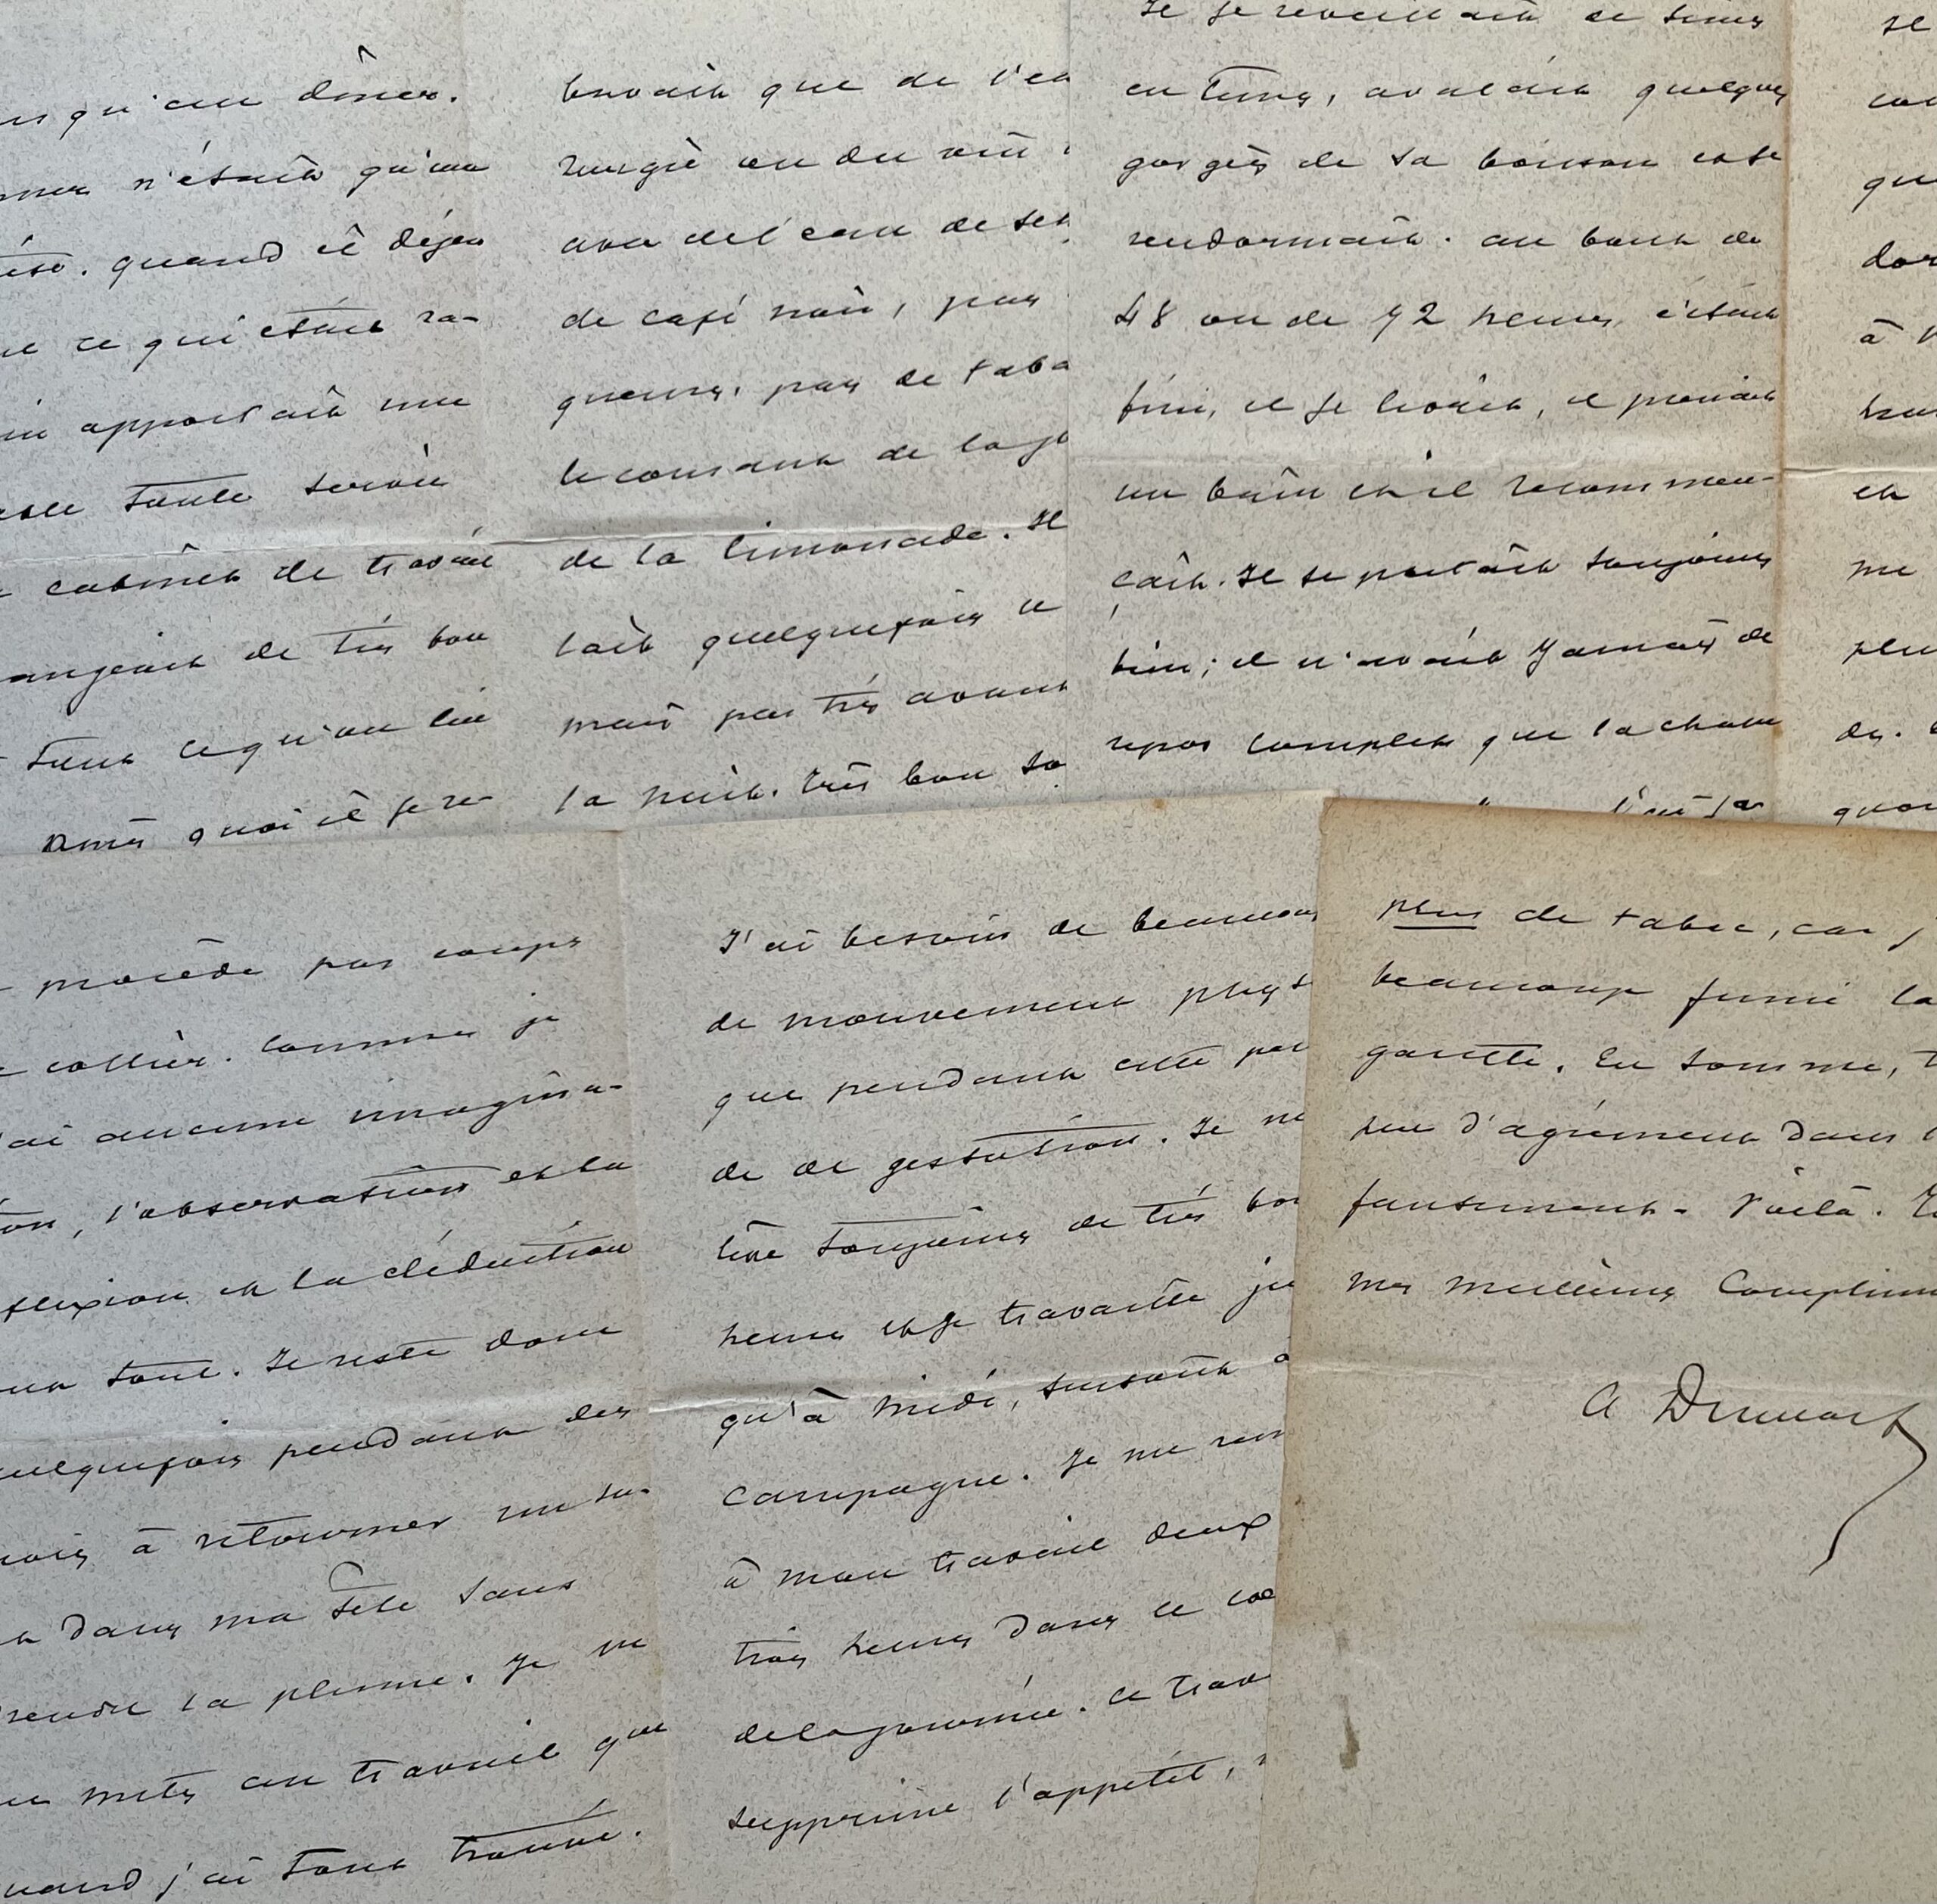 qu'au dîner.
n'était qu'un
quand il déjeu
ce qui était ra-
apportait une
toute servie
cabinet de travail
angeait de très bon
tout ce qu'on lui
Après quoi il se re-
buvait que de l'ea
rougie ou du vin
avec de l'eau de sel
de café noir, pas
queurs, pas de taba
le courant de la jo
de la limonade. Il
lait quelquefois le
mais pas très avant
la nuit. Très bon so
Il se réveillait de tems
en tems, avalait quelques
gorgées de sa boisson et se
rendormait. au bout de
48 ou de 72 heures, c'était
fini, il se levait, il prenait
un bain et il recommen-
çait. Il se portait toujours
bien; il n'avait jamais de
repos complet que la chasse
se
qu
dor
à
et
me
plu
procède par coups
collier. Comme je
ai aucune imagina-
tion, l'observation et la
flexion et la déduction
tout. Je reste donc
quelquefois pendant des
mois à retourner un su-
dans ma tête sans
prendre la plume. Je ne
me mets au travail que
quand j'ai tout trouvé.
J'ai besoin de beaucoup
de mouvement physi
que pendant cette pér
de de gestation. Je me
lève toujours de très bon
heure et je travaille ju
qu'à midi, surtout à
campagne. Je me rem
à mon travail deux
trois heures dans le co
de la journée. Ce trav
supprime l'appétit,
plus de tabac, car j
beaucoup fumé la
garette. En somme, t
peu d'agrément dans l
fantement. Voilà.
mes meilleurs Complim
A Dumas f